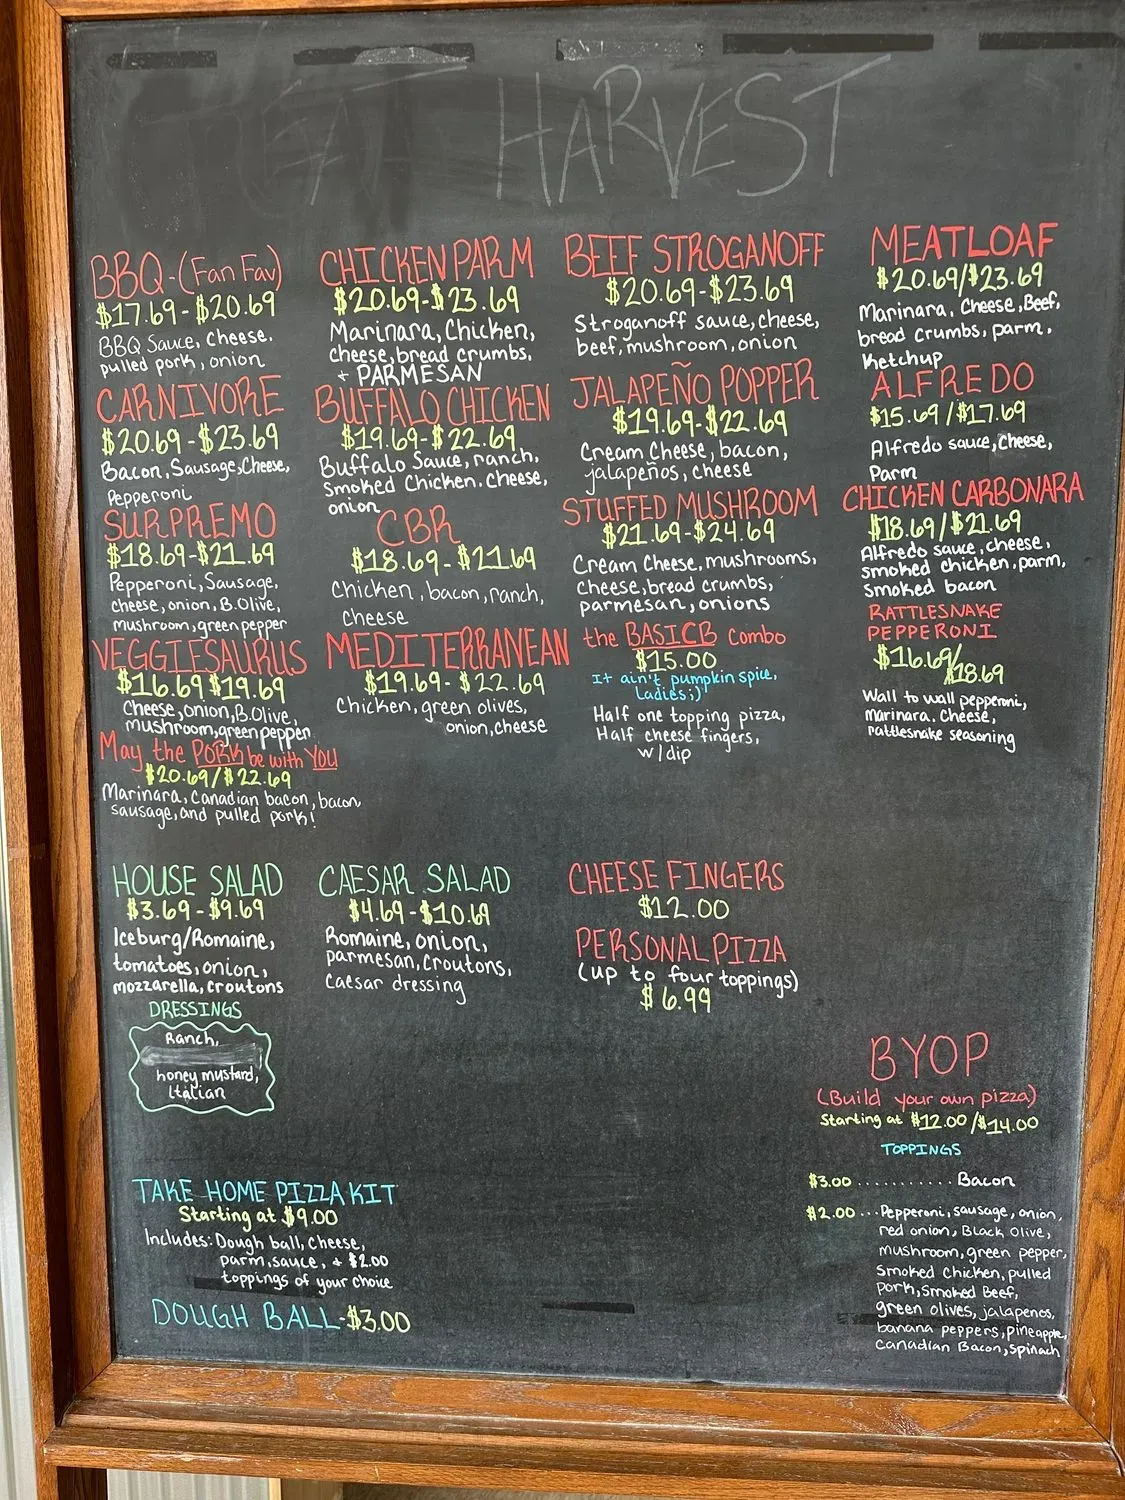 EAT HARVEST
BBQ-(Fan Fav)
$17.69-$20.69
BBQ Sauce, cheese,
pulled pork, onion
CARNIVORE
$20.69-$23.69
Bacon, Sausage, Cheese,
Pepperoni
SURPREMO
$18.69-$21.69
Pepperoni, Sausage,
cheese, onion, B.Olive,
mushroom, green pepper
VEGGIESAURUS
$16.69 $19.69
Cheese, onion, B.Olive,
mushroom, green pepper
May the PORK be with YOU
$20.69/$22.69
Marinara, Canadian bacon, bacon,
sausage, and pulled pork!
CHICKEN PARM
$20.69-$23.69
Marinara, Chicken,
cheese, bread crumbs,
+ PARMESAN
BUFFALO CHICKEN
$19.69-$22.69
Buffalo Sauce, ranch,
Smoked Chicken, cheese,
onion
CBR
$18.69-$21.69
Chicken, bacon, ranch,
cheese
MEDITERRANEAN
$19.69-$22.69
Chicken, green olives,
onion, cheese
BEEF STROGANOFF
$20.69-$23.69
Stroganoff sauce, cheese,
beef, mushroom, onion
JALAPEÑO POPPER
$19.69-$22.69
Cream Cheese, bacon,
jalapeños, cheese
STUFFED MUSHROOM
$21.69-$24.69
Cream Cheese, mushrooms,
Cheese, bread crumbs,
parmesan, onions
the BASICB combo
$15.00
It ain't pumpkin spice,
Ladies ;)
Half one topping pizza,
Half cheese fingers,
w/dip
MEATLOAF
$20.69/$23.69
Marinara, Cheese, Beef,
bread crumbs, parm,
Ketchup
ALFREDO
$15.69/$17.69
Alfredo sauce, cheese,
Parm
CHICKEN CARBONARA
$18.69/$21.69
Alfredo sauce, cheese,
smoked chicken, parm,
smoked bacon
RATTLESNAKE
PEPPERONI
$16.69/$18.69
Wall to wall pepperoni,
marinara, cheese,
rattlesnake seasoning
HOUSE SALAD
$3.69-$9.69
Iceburg/Romaine,
tomatoes, onion,
mozzarella, croutons
DRESSINGS
Ranch,
honey mustard,
Italian
CAESAR SALAD
$4.69-$10.69
Romaine, onion,
parmesan, croutons,
Caesar dressing
CHEESE FINGERS
$12.00
PERSONAL PIZZA
(up to four toppings)
$6.99
BYOP
(Build your own pizza)
Starting at $12.00/$14.00
TOPPINGS
$3.00 ........... Bacon
$2.00 ... Pepperoni, sausage, onion,
red onion, Black olive,
mushroom, green pepper,
Smoked chicken, pulled
pork, smoked Beef,
green olives, jalapenos,
banana peppers, pineapple,
Canadian Bacon, spinach
TAKE HOME PIZZA KIT
Starting at $9.00
Includes: Dough ball, cheese,
parm, sauce, + $2.00
toppings of your choice
DOUGH BALL-$3.00